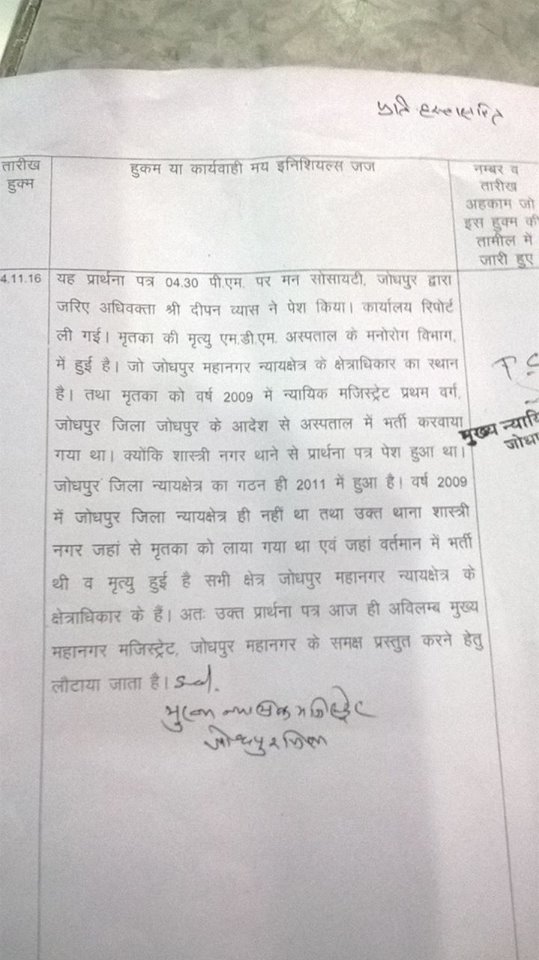 तारीख
हुक्म
हुकम या कार्यवाही मय इनिशियल्स जज
नम्बर व
तारीख
अहकाम जो
इस हुक्म की
तामील में
जारी हुए
4.11.16 यह प्रार्थना पत्र 04.30 पी.एम. पर मन सोसायटी, जोधपुर द्वारा
जरिए अधिवक्ता श्री दीपन व्यास ने पेश किया। कार्यालय रिपोर्ट
ली गई। मृतका की मृत्यु एम.डी.एम. अस्पताल के मनोरोग विभाग,
में हुई है। जो जोधपुर महानगर न्यायक्षेत्र के क्षेत्राधिकार का स्थान
है। तथा मृतका को वर्ष 2009 में न्यायिक मजिस्ट्रेट प्रथम वर्ग,
जोधपुर जिला जोधपुर के आदेश से अस्पताल में भर्ती करवाया
गया था। क्योंकि शास्त्री नगर थाने से प्रार्थना पत्र पेश हुआ था।
जोधपुर जिला न्यायक्षेत्र का गठन ही 2011 में हुआ है। वर्ष 2009
में जोधपुर जिला न्यायक्षेत्र ही नहीं था तथा उक्त थाना शास्त्री
नगर जहां से मृतका को लाया गया था एवं जहां वर्तमान में भर्ती
थी व मृत्यु हुई है सभी क्षेत्र जोधपुर महानगर न्यायक्षेत्र के
क्षेत्राधिकार के हैं। अतः उक्त प्रार्थना पत्र आज ही अविलम्ब मुख्य
महानगर मजिस्ट्रेट, जोधपुर महानगर के समक्ष प्रस्तुत करने हेतु
लौटाया जाता है। sd.
मुख्य न्यायिक मजिस्ट्रेट
जोधपुर जिला
मुख्य न्यायि
जोधपु